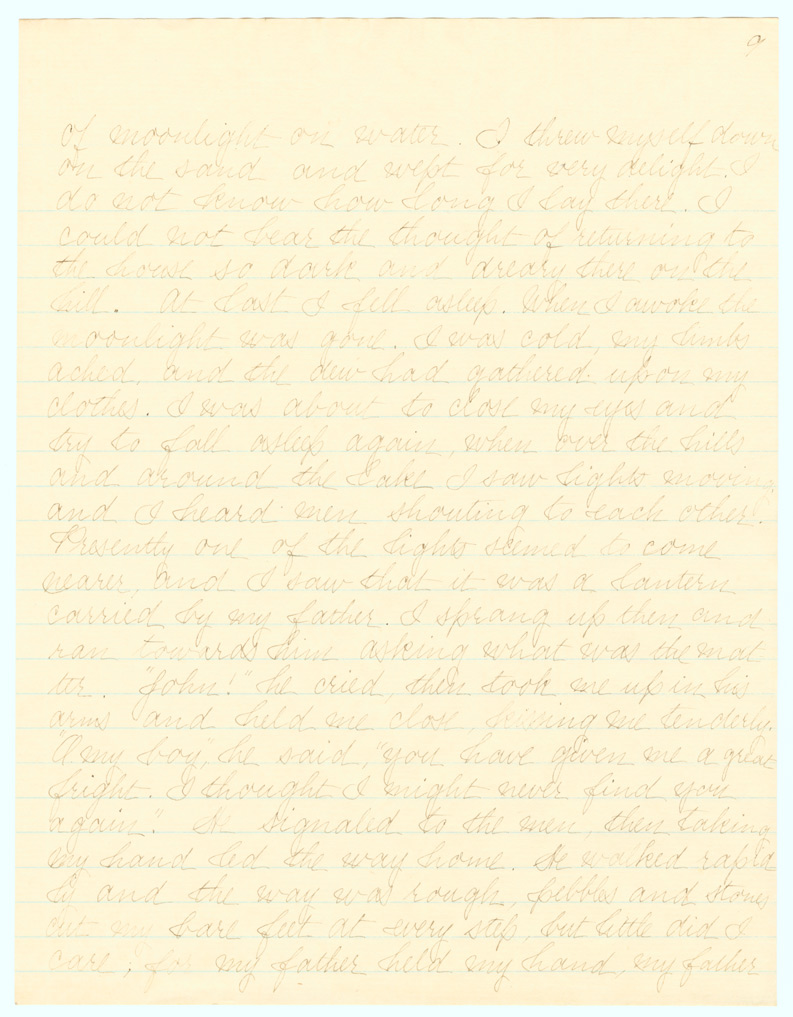 9
of moonlight on water. I threw myself down
on the sand and wept for very delight. I
do not know how long I lay there. I
could not bear the thought of returning to
the house so dark and dreary there on the
hill. At last I fell asleep. When I awoke the
moonlight was gone. I was cold, my limbs
ached, and the dew had gathered upon my
clothes. I was about to close my eyes and
try to fall asleep again, when over the hills
and around the Lake I saw lights moving,
and I heard men shouting to each other.
Presently one of the lights seemed to come
nearer, and I saw that it was a lantern
carried by my father. I sprang up then and
ran towards him asking what was the mat
ter. "John!" he cried, then took me up in his
arms and held me close, kissing me tenderly.
"A my boy", he said, "you have given me a great
fright. I thought I might never find you
again". He signaled to the men, then taking
my hand led the way home. He walked rapid
ly and the way was rough, pebbles and stones
cut my bare feet at every step, but little did I
care; for my father held my hand, my father